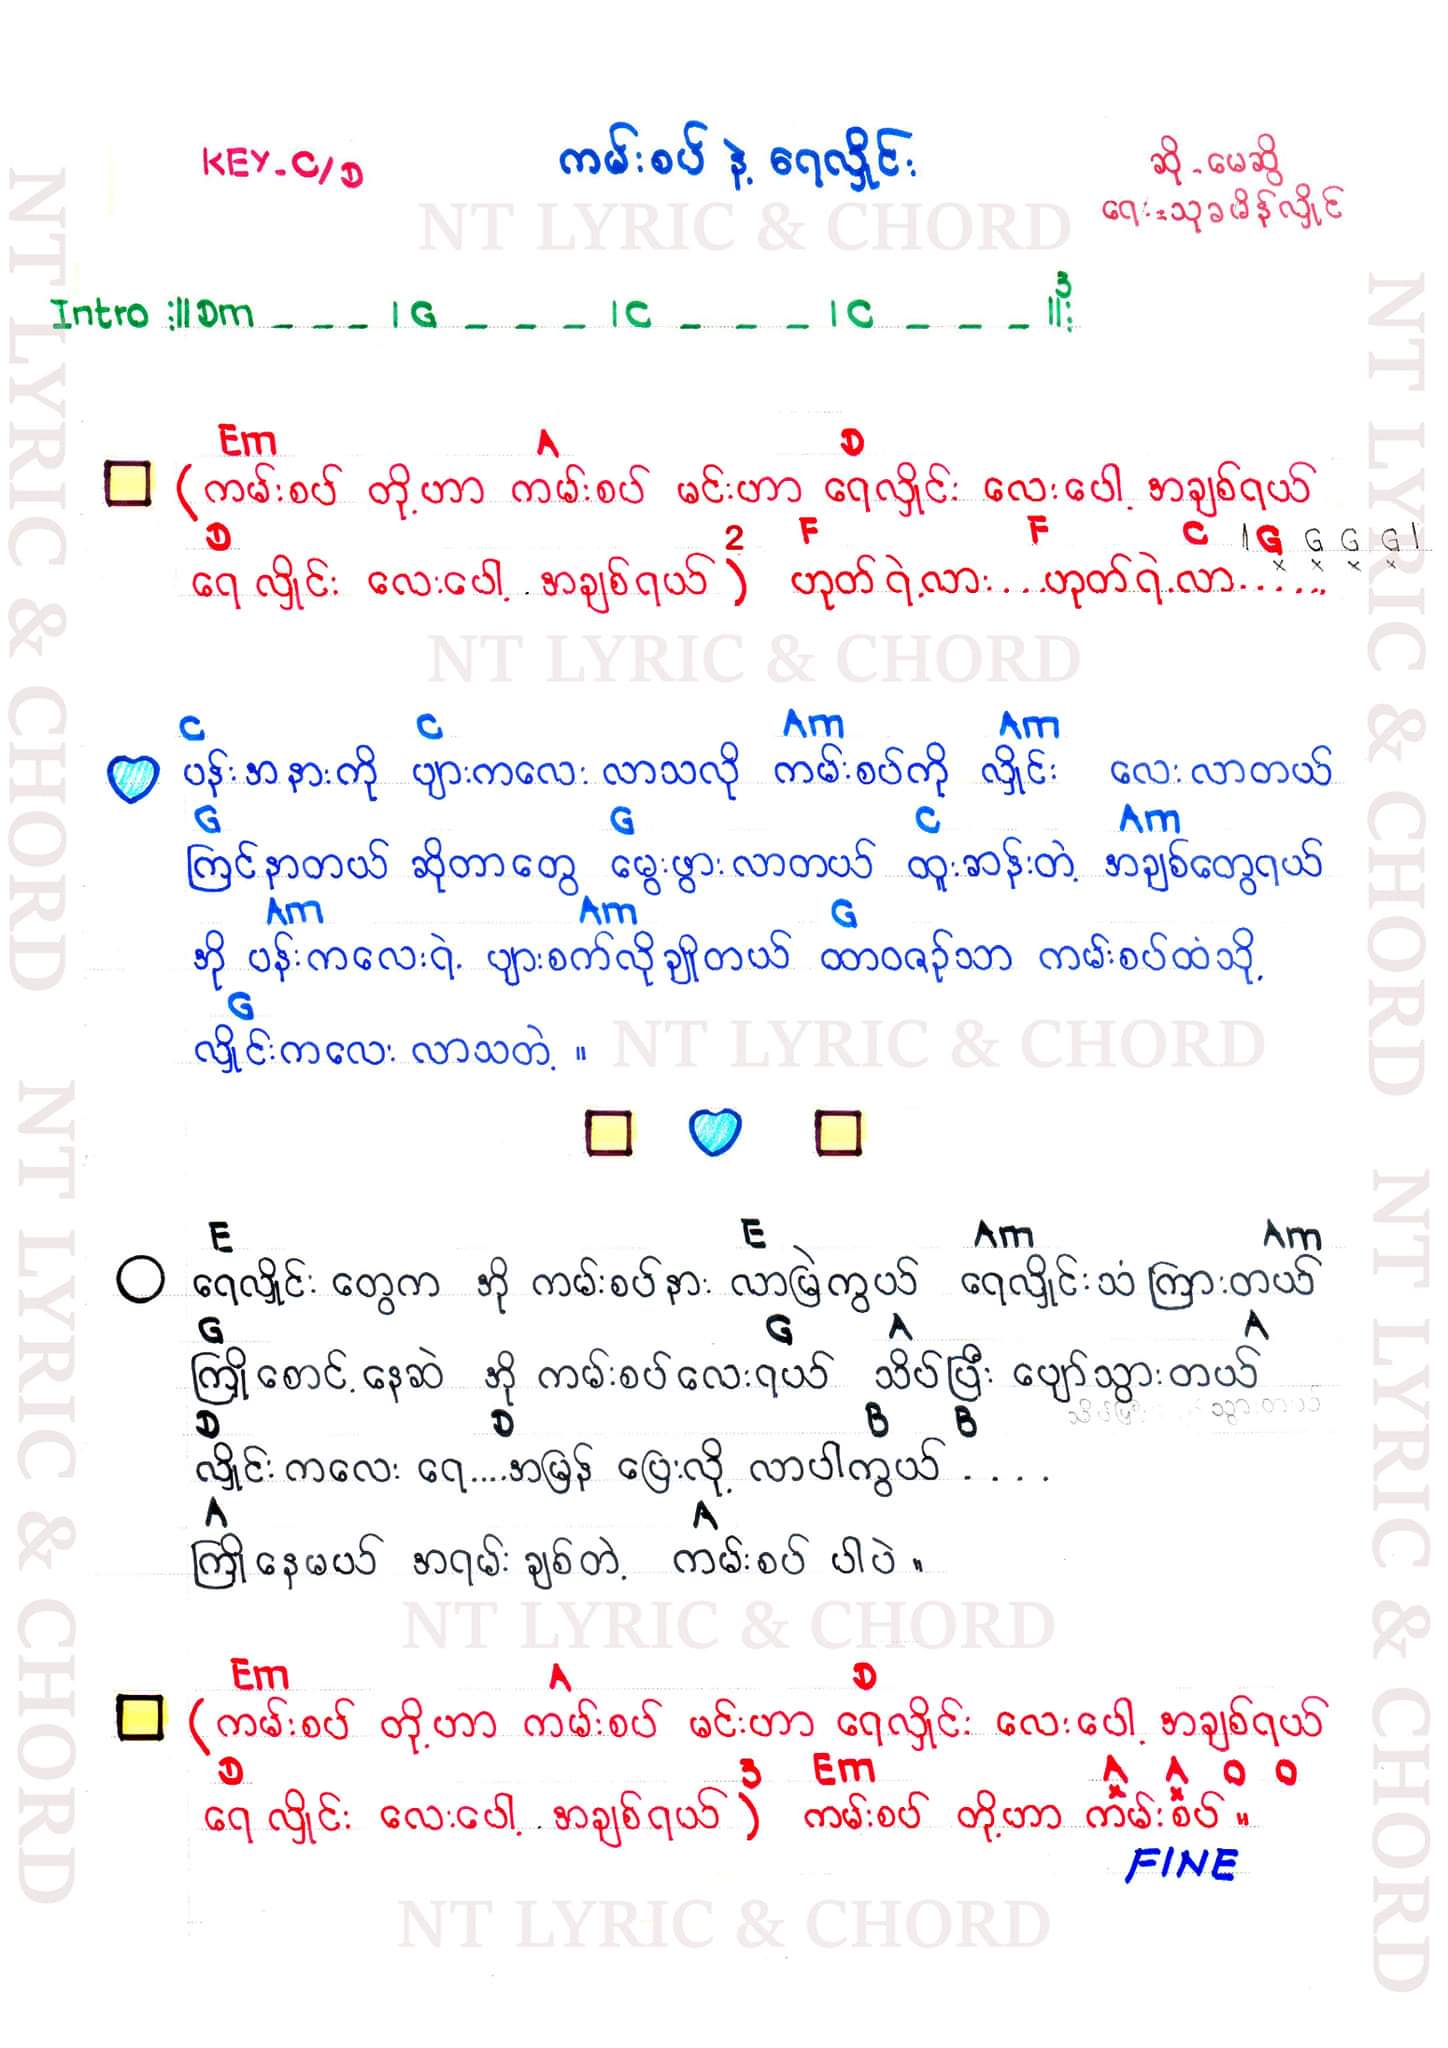 KEY-C/D
ကမ်းစပ် နဲ့ ရေလှိုင်း
ဆို - မေဆွိ
ရေး = သုခမိန်လှိုင်
NT LYRIC & CHORD
Intro :||Dm _ _ _ |G _ _ _ |C _ _ _ |C _ _ _ ||: 3
Em A D
(ကမ်းစပ် တို့ဟာ ကမ်းစပ် မင်းဟာ ရေလှိုင်း လေးပေါ့ အချစ်ရယ်
D 2 F F C |G G G G|
ရေလှိုင်း လေးပေါ့ အချစ်ရယ်) ဟုတ်ရဲ့လား...ဟုတ်ရဲ့လာ......
NT LYRIC & CHORD
C C Am Am
ပန်းအနားကို ပျားကလေး လာသလို ကမ်းစပ်ကို လှိုင်း လေးလာတယ်
G G C Am
ကြင်နာတယ် ဆိုတာတွေ မွေးဖွားလာတယ် ထူးဆန်းတဲ့ အချစ်တွေရယ်
Am Am G
အို ပန်းကလေးရဲ့ ပျားစက်လိုချိုတယ် ထာဝစဉ်သာ ကမ်းစပ်ထံသို့
G
လှိုင်းကလေး လာသတဲ့ ။
NT LYRIC & CHORD
E E Am Am
ရေလှိုင်း တွေက အို ကမ်းစပ်နား လာမြဲကွယ် ရေလှိုင်းသံ ကြားတယ်
G G A A
ကြိုစောင့်နေဆဲ အို ကမ်းစပ်လေးရယ် သိပ်ပြီး ပျော်သွားတယ်
D D B B
လှိုင်းကလေး ရေ....အမြန် ပြေးလို့ လာပါကွယ် ....
A A
ကြိုနေမယ် အရမ်းချစ်တဲ့ ကမ်းစပ် ပါပဲ ။
NT LYRIC & CHORD
Em A D
(ကမ်းစပ် တို့ဟာ ကမ်းစပ် မင်းဟာ ရေလှိုင်း လေးပေါ့ အချစ်ရယ်
D 3 Em A A O O
ရေလှိုင်း လေးပေါ့ အချစ်ရယ်) ကမ်းစပ် တို့ဟာ ကမ်းစပ် ။
FINE
NT LYRIC & CHORD
NT LYRIC & CHORD
NT LYRIC & CHORD
NT LYRIC & CHORD
NT LYRIC & CHORD